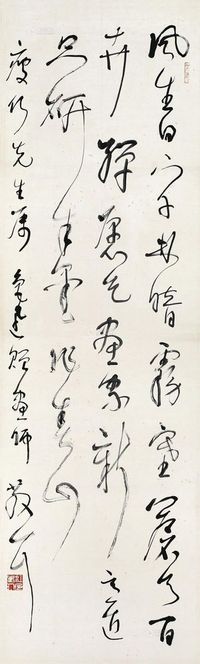 風生白下千林暗霧塞蒼天百
卉殫愿乞畫家新意匠
只研朱墨作春山
瘦竹先生屬 魯迅贈畫師 散耳